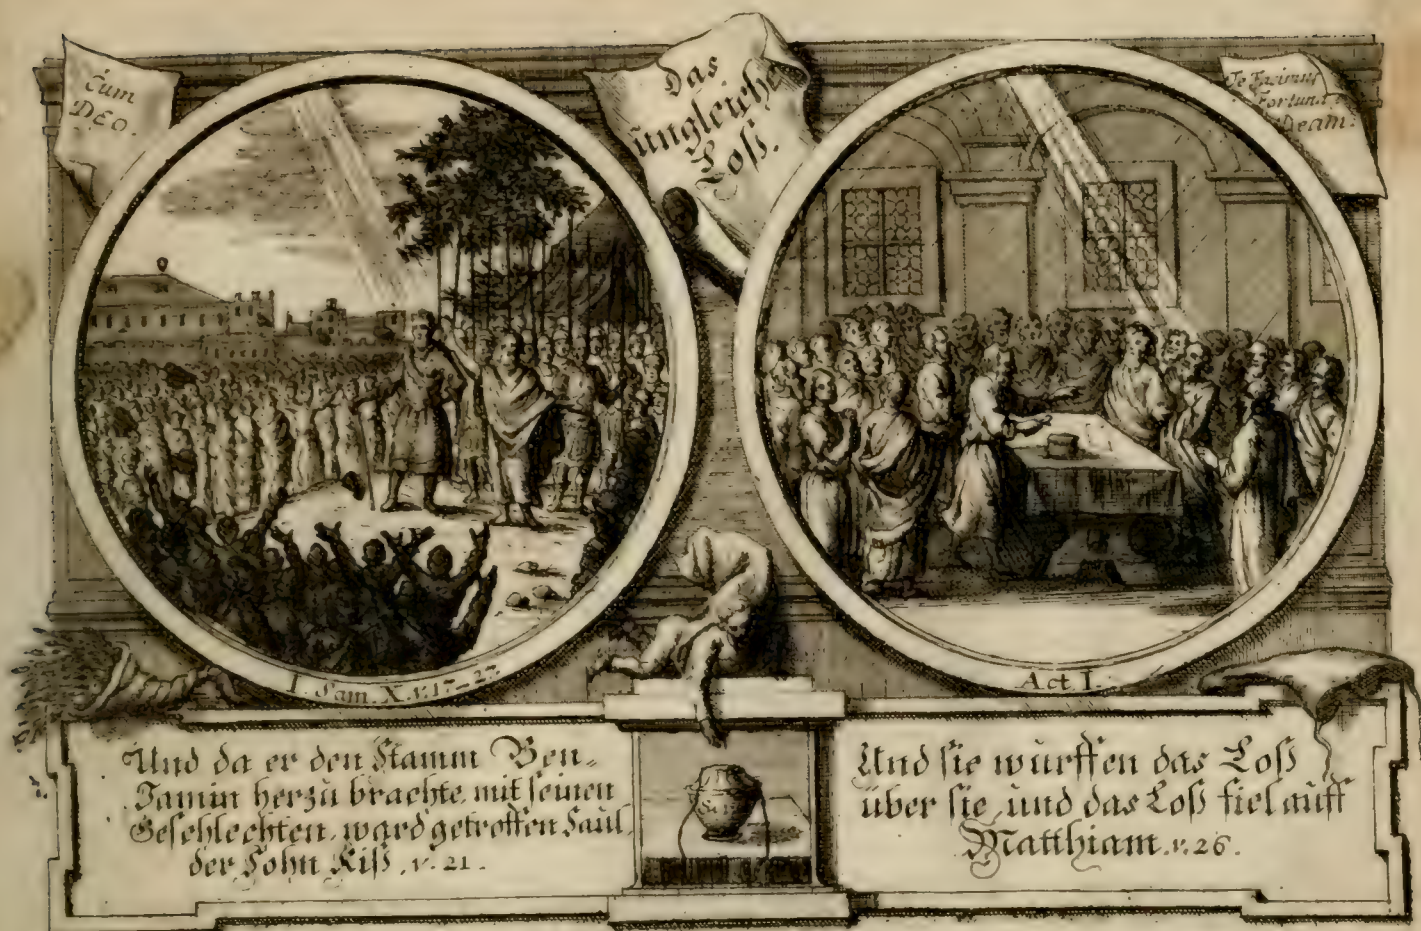 Cum
DEO.
Das
ungleiche
Loß.
Te Facimus
Fortuna
Deam.
I. Sam. X. v. 17-27.
Act. I.
Und da er den Stamm Ben-
Jamin herzu brachte, mit seinen
Geschlechten, ward getroffen Saul
der Sohn Kiß. v. 21.
Und sie wurffen das Loß
über sie, und das Loß fiel auff
Matthiam. v. 26.